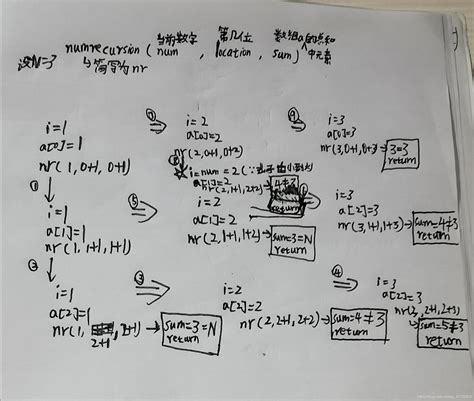 当前数字 第几位 数组a的总和
numrecursion ( num , location , sum ) 中元素
设N=3 简写为nr
① ⇒ ⑦ ⇒
i=1 i=2 i=3
a[0]=1 a[0]=2 a[0]=3
nr(1,0+1,0+1) nr(2,0+1,0+2) nr(3,0+1,0+3) → 3=3
return
i=num=2
a[1]=2
nr(2,1+1,2+2) → 4≠3
return
① ↓ ⑤ ⇒ ⇒
i=1 i=2 i=3
a[1]=1 a[1]=2 a[2]=3
nr(1,1+1,1+1) nr(2,1+1,1+2) → sum=3=N nr(3,1+1,1+3) → sum=4≠3
return return
② ↓ ③ ⇒ ④ ⇒
i=1 i=2 i=3
a[2]=1 a[2]=2 a[2]=3
nr(1, 2+1, 2+1) → sum=3=N nr(2,2+1,2+2) → sum=4≠3 nr(3,2+1,2+3)
return return sum=5≠3
return